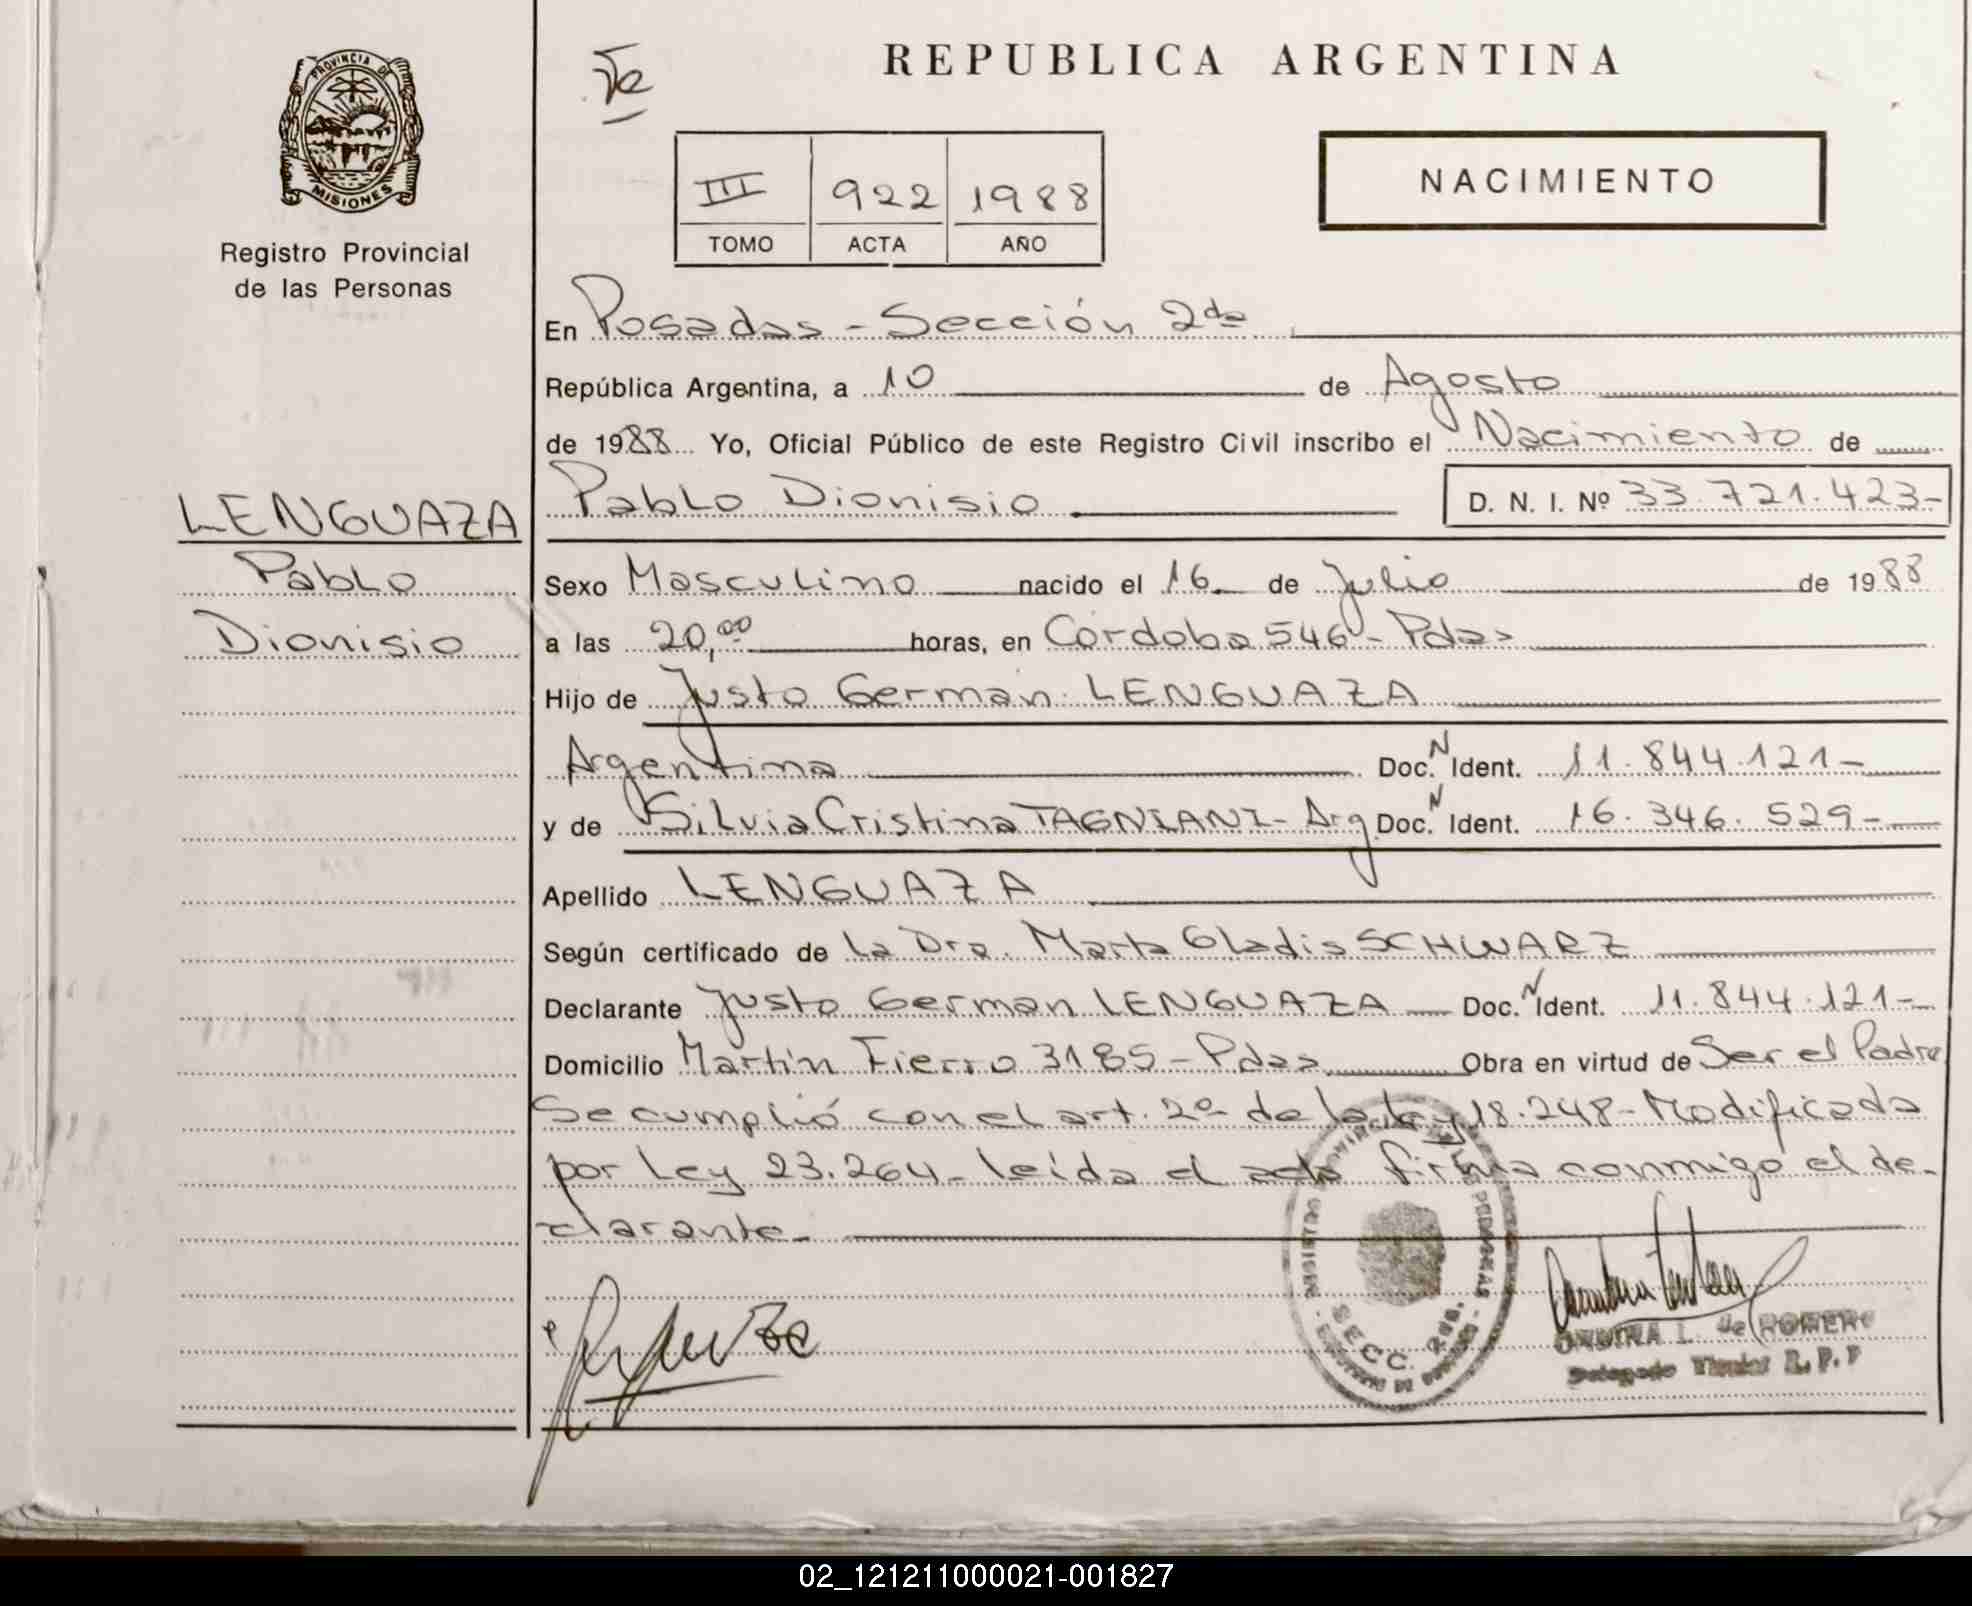 REPUBLICA ARGENTINA
PROVINCIA DE
MISIONES
Registro Provincial
de las Personas
III 922 1988
TOMO ACTA AÑO
NACIMIENTO
En Posadas - Sección 2da
República Argentina, a 10 de Agosto
de 1988 Yo, Oficial Público de este Registro Civil inscribo el Nacimiento de
LENGUAZA
Pablo
Dionisio
Pablo Dionisio D. N. I. Nº 33.721.423-
Sexo Masculino nacido el 16 de Julio de 1988
a las 20,00 horas, en Córdoba 546 - Pdas
Hijo de Justo German LENGUAZA
Argentina Doc. N Ident. 11.844.121-
y de Silvia Cristina TAGNIANI - Arg Doc. N Ident. 16.346.529-
Apellido LENGUAZA
Según certificado de la Dra. Marta Gladis SCHWARZ
Declarante Justo German LENGUAZA Doc. N Ident. 11.844.121-
Domicilio Martín Fierro 3185 - Pdas Obra en virtud de Ser el Padre
Se cumplió con el art. 2º de la ley 18.248 - Modificada
por Ley 23.264 - leída el acta firma conmigo el de-
clarante -
SECC. 2da.
L. de ROMERO
Delegado Titular R. P. P
02_121211000021-001827